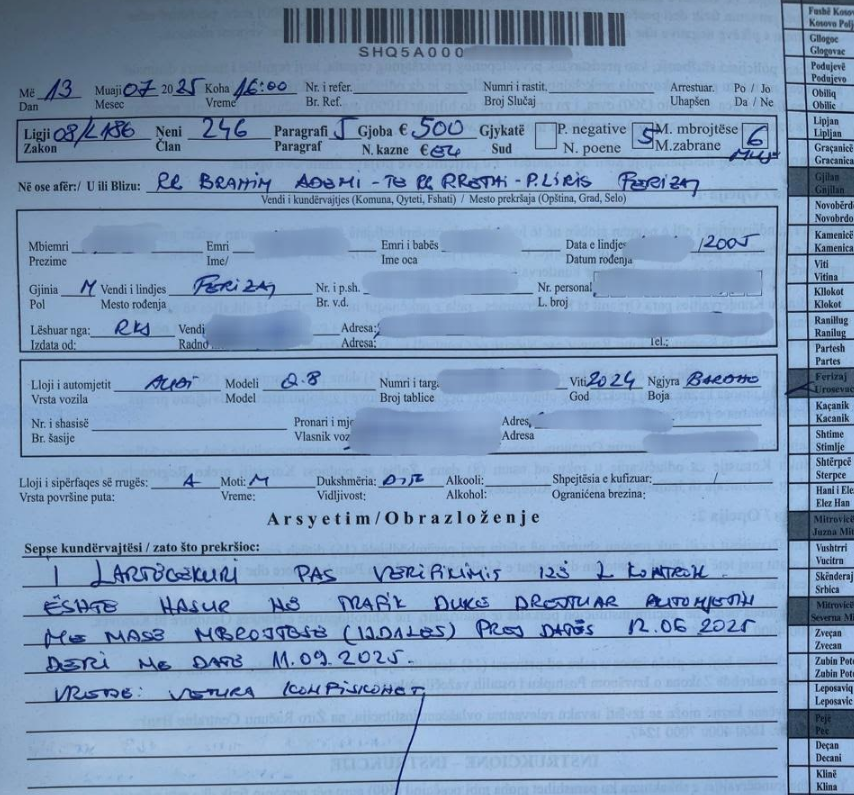 SHQ5A000
Më 13 Muaji 07 2025 Koha 16:00 Nr. i refer. Numri i rastit. Arrestuar. Po / Jo
Dan Mesec Vreme Br. Ref. Broj Slučaj Uhapšen Da / Ne
Ligji 08/L186 Neni 246 Paragrafi 5 Gjoba € 500 Gjykatë P. negative 5 M. mbrojtëse 6
Zakon Član Paragraf N. kazne € Sud N. poene M.zabrane Muaj
Në ose afër:/ U ili Blizu: RR BRAHIM ADEMI - TE RR RRETHI - P.LIRIS FERIZAJ
Vendi i kundërvajtjes (Komuna, Qyteti, Fshati) / Mesto prekršaja (Opština, Grad, Selo)
Mbiemri Emri Emri i babës Data e lindjes /2005
Prezime Ime/ Ime oca Datum rođenja
Gjinia M Vendi i lindjes FERIZAJ Nr. i p.sh. Nr. personal
Pol Mesto rođenja Br. v.d. L. broj
Lëshuar nga: RKS Vendi Adresa:
Izdata od: Radno Adresa: Tel.:
Lloji i automjetit AUDI Modeli Q.8 Numri i targ Viti 2024 Ngjyra BARDHO
Vrsta vozila Model Broj tablice God Boja
Nr. i shasisë Pronari i mje Adres
Br. šasije Vlasnik voz Adresa
Lloji i sipërfaqes së rrugës: A Moti: M Dukshmëria: DITË Alkooli: Shpejtësia e kufizuar: /
Vrsta površine puta: Vreme: Vidljivost: Alkohol: Ograničena brezina:
Arsyetim/Obrazloženje
Sepse kundërvajtësi / zato što prekršioc:
I LARTËCEKURI PAS VERIFIKIMIS KONTROLL
ËSHTË HASUR NË TRAFIK DUKE DREJTUAR AUTOMJETIN
ME MASË MBROJTËSE (NDALES) PREJ DATËS 12.06 2025
DERI ME DATË 11.09.2025.
VREJTJE: VETURA KONFISKOHET
Fushë Kosov
Kosovo Polj
Gllogoc
Glogovac
Podujevë
Podujevo
Obiliq
Obilic
Lipjan
Lipljan
Graçanicë
Gracanica
Gjilan
Gnjilan
Novobërdë
Novobrdo
Kamenicë
Kamenica
Viti
Vitina
Kllokot
Klokot
Ranillug
Ranilug
Partesh
Partes
Ferizaj
Urosevac
Kaçanik
Kacanik
Shtime
Stimlje
Shtërpcë
Sterpce
Hani i Elez
Elez Han
Mitrovicë
Juzna Mit
Vushtrri
Vucitrn
Skënderaj
Srbica
Mitrovicë
Severna Mi
Zveçan
Zvecan
Zubin Poto
Zubin Poto
Leposaviq
Leposavic
Pejë
Pec
Deçan
Decani
Klinë
Klina